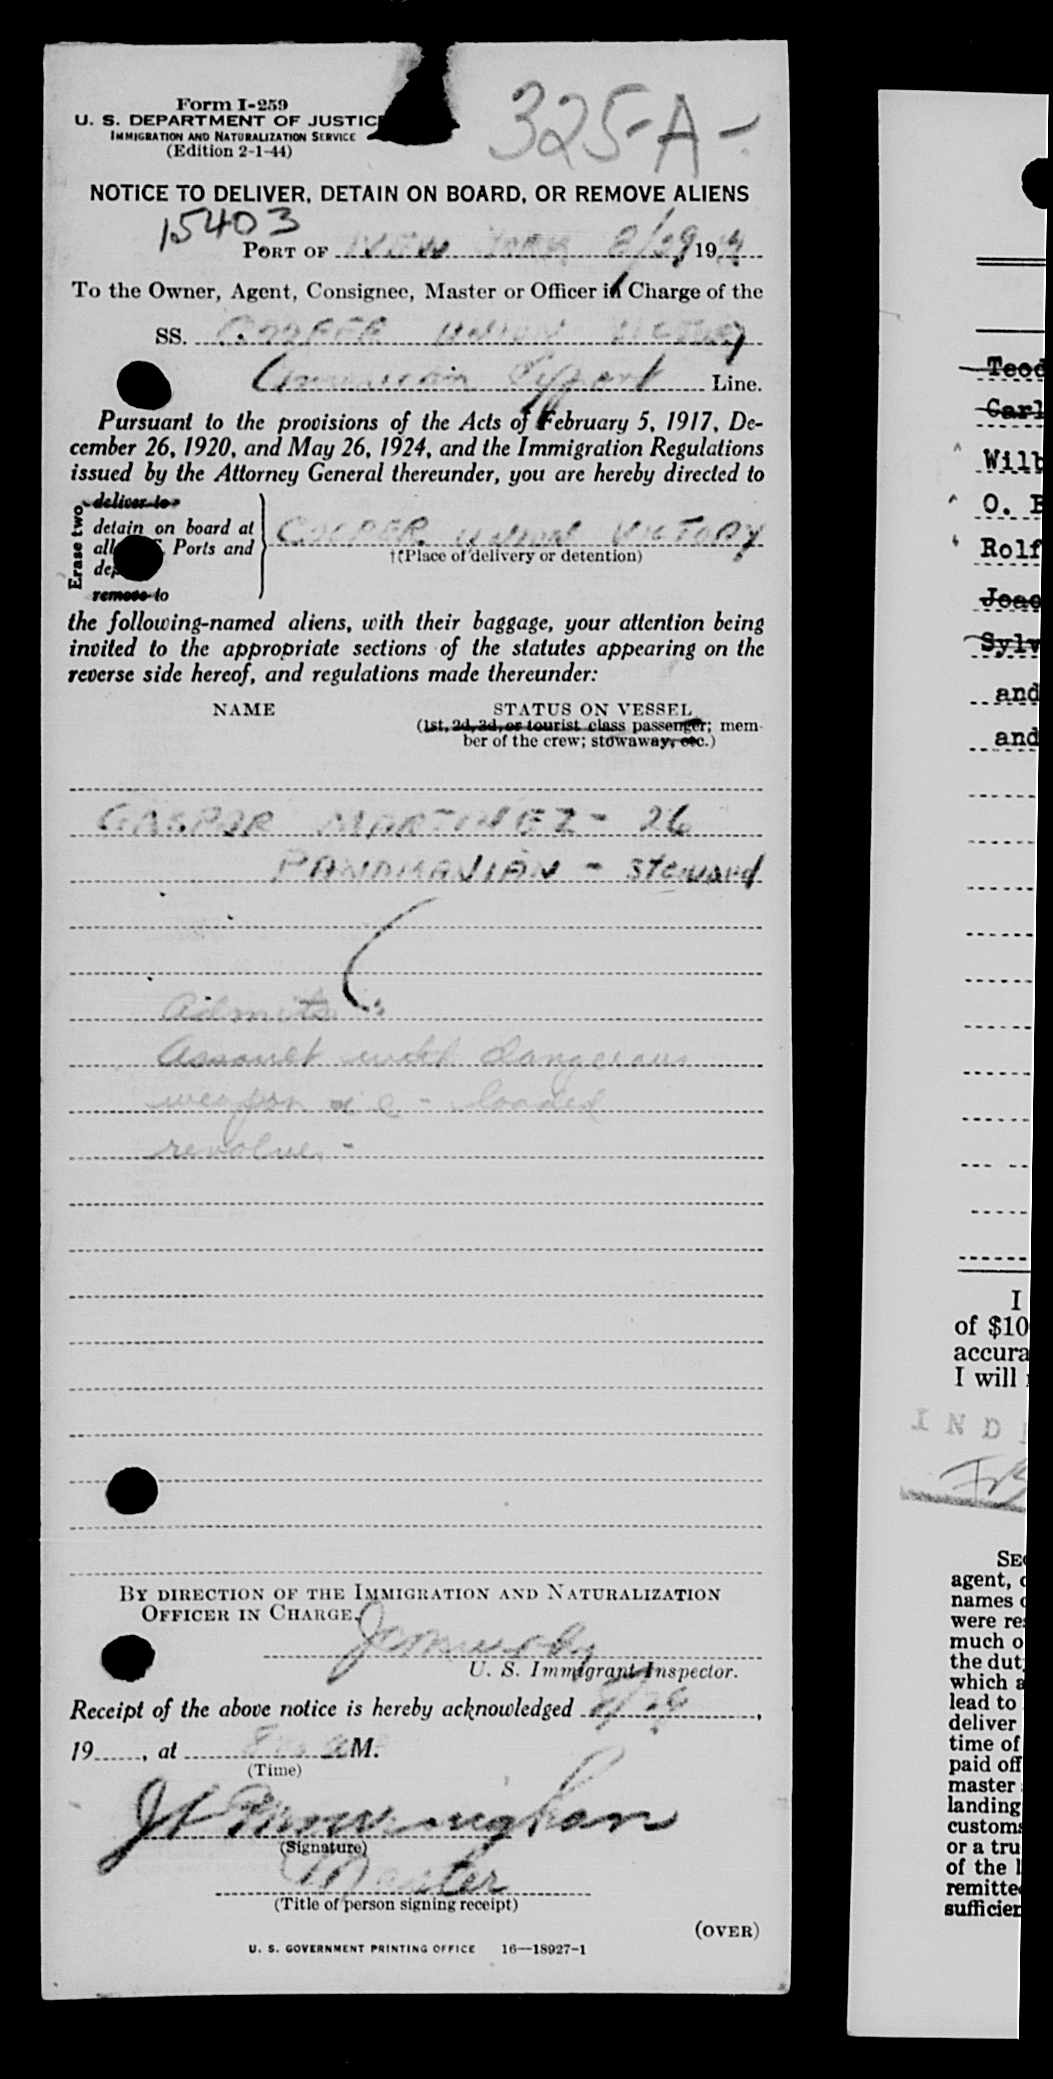 Form I-259
U. S. DEPARTMENT OF JUSTICE
IMMIGRATION AND NATURALIZATION SERVICE
(Edition 2-1-44)
325-A-
NOTICE TO DELIVER, DETAIN ON BOARD, OR REMOVE ALIENS
15403
PORT OF NEW YORK 8/29, 19
To the Owner, Agent, Consignee, Master or Officer in Charge of the
SS. COOPER UNION VICTORY
American Export Line.
Pursuant to the provisions of the Acts of February 5, 1917, De-
cember 26, 1920, and May 26, 1924, and the Immigration Regulations
issued by the Attorney General thereunder, you are hereby directed to
Erase two
deliver to
detain on board at
all Ports and
remove to
COOPER UNION VICTORY
†(Place of delivery or detention)
the following-named aliens, with their baggage, your attention being
invited to the appropriate sections of the statutes appearing on the
reverse side hereof, and regulations made thereunder:
NAME
STATUS ON VESSEL
(1st, 2d, 3d, or tourist class passenger; mem-
ber of the crew; stowaway, etc.)
GASPAR MARTINEZ - 26
PANAMANIAN - Steward
Admits
Assault with dangerous
weapon i e - loaded
revolver -
BY DIRECTION OF THE IMMIGRATION AND NATURALIZATION
OFFICER IN CHARGE.
U. S. Immigrant Inspector.
Receipt of the above notice is hereby acknowledged 8/29,
19, at M.
(Time)
(Signature)
Master
(Title of person signing receipt)
(OVER)
U. S. GOVERNMENT PRINTING OFFICE 16—18927-1
Teod
Carl
Wilb
O. B
Rolf
Joao
Sylv
and
and
I
of $10
accura
I will
IND
SEC
agent, o
names o
were re
much o
the dut
which a
lead to
deliver
time of
paid off
master
landing
customs
or a tru
of the l
remitte
sufficien